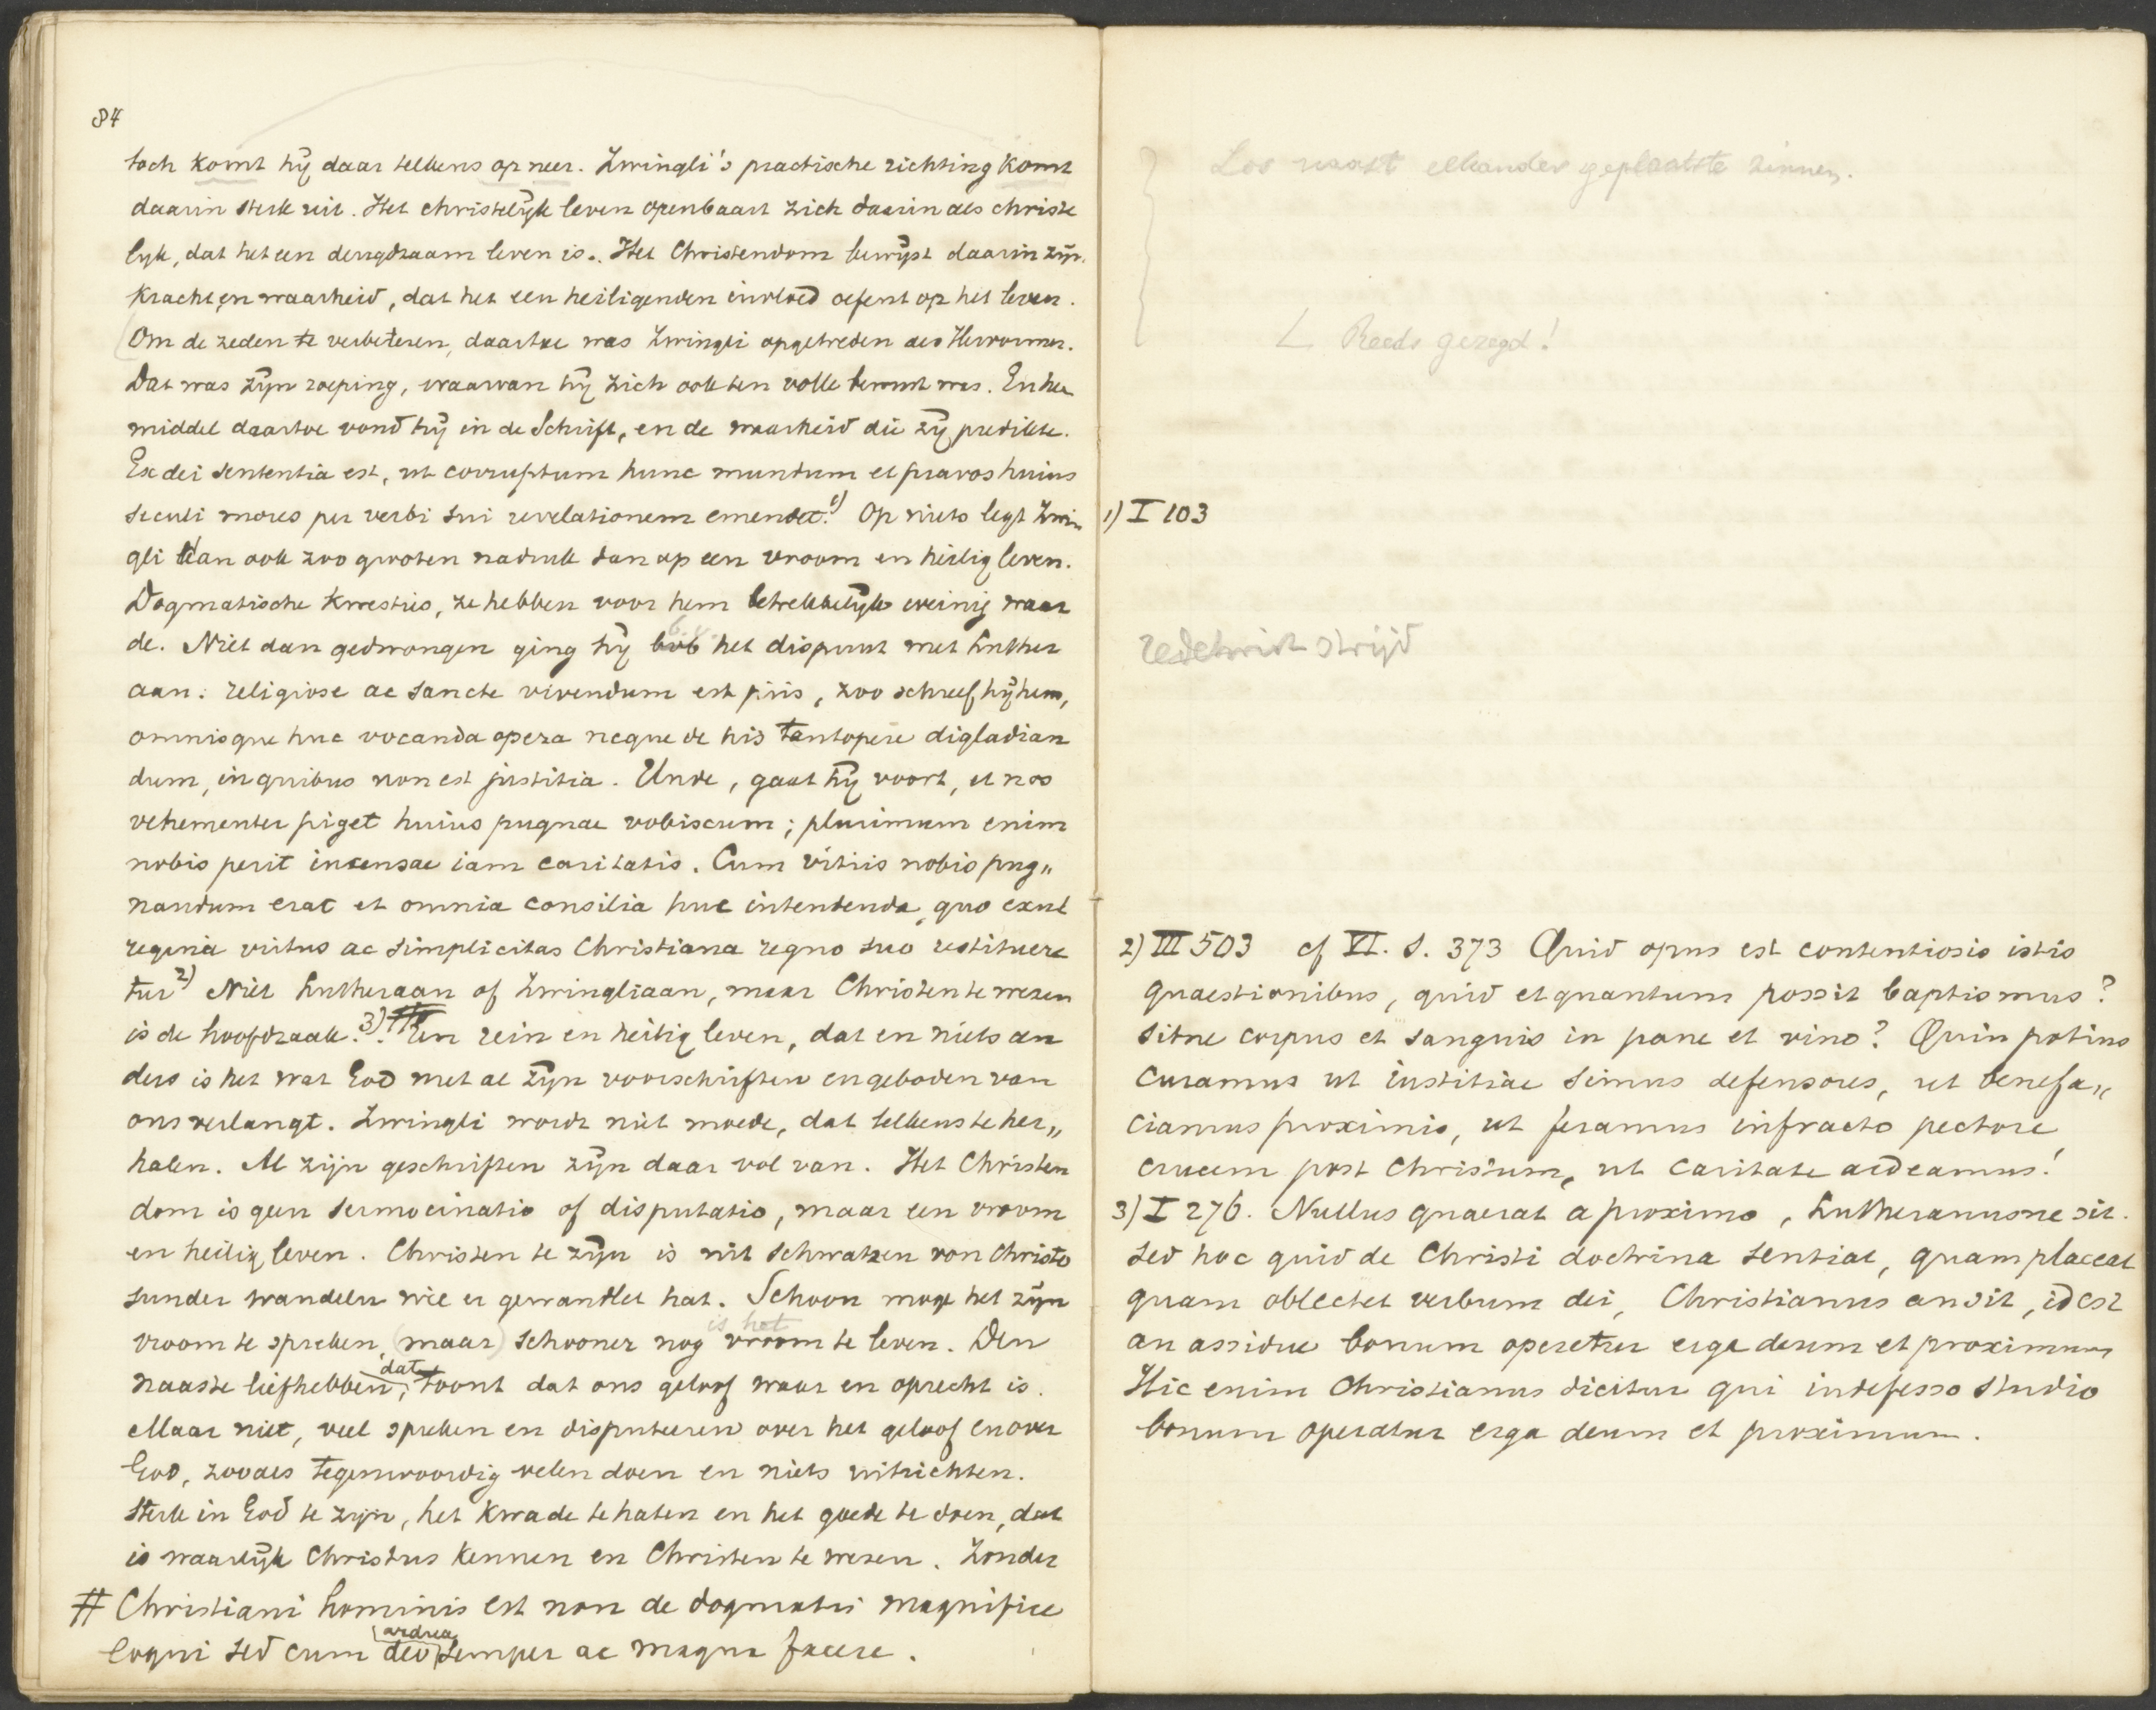 84
toch komt hij daar telkens op neer. Zwingli's practische richting komt
daarin sterk uit. Het christelijk leven openbaart zich daarin als christe
lijk, dat het een deugdzaam leven is. Het Christendom bewijst daarin zijn
kracht en waarheid, dat het een heiligenden invloed oefent op het leven.
Om de zeden te verbeteren, daartoe was Zwingli opgetreden als Hervormer.
Dat was zijn roeping, waarvan hij zich ook ten volle bewust was. En het
middel daartoe vond hij in de Schrift, en de waarheid die zij predikte.
Ex dei sententia est, ut corruptum hunc mundum et pravos huius
seculi mores per verbi sui revelationem emendet. 1) Op niets legt Zwin
gli dan ook zoo grooten nadruk dan op een vroom en heilig leven.
Dogmatische kwesties, ze hebben voor hem betrekkelijk weinig waar
de. Niet dan gedwongen ging hij het dispuut met Luther
aan. religiose ac sancte vivendum est piis, zoo schreef hij hem,
omnisque huc vocanda opera neque de his tantopere digladian
dum, in quibus non est justitia. Unde, gaat hij voort, et nos
vehementer piget huius pugnae vobiscum; plurimum enim
nobis perit incensae iam caritatis. Cum vitiis nobis pug„
nandum erat et omnia consilia huc intendenda, quo exul
regina virtus ac simplicitas Christiana regno suo restituere
tur 2) Niet Lutheraan of Zwingliaan, maar Christen te wezen
is de hoofdzaak. 3) # Een rein en heilig leven, dat en niets an
ders is het wat God met al zijn voorschriften en geboden van
ons verlangt. Zwingli wordt niet moede, dat telkens te her„
halen. Al zijn geschriften zijn daar vol van. Het Christen
dom is geen sermocinatio of disputatio, maar een vroom
en heilig leven. Christen te zijn is nit schwatzen von Christo
sunder wandeln wie er gewandlet hat. Schoon moge het zijn
vroom te spreken, (maar) schooner nog is het vroom te leven. Den
naaste liefhebben, dat toont dat ons geloof waar en oprecht is.
Maar niet, veel spreken en disputeeren over het geloof en over
God, zooals tegenwoordig velen doen en niets uitrichten.
Sterk in God te zijn, het kwade te haten en het goede te doen, dat
is waarlijk Christus kennen en Christen te wezen. Zonder
# Christiani hominis est non de dogmatis magnifice
loqui sed cum deo ardua semper ac magna facere.
Los naast elkander geplaatste zinnen.
L Reeds gezegd!
1) I 103
redetwist strijd
2) III 503 cf VI. S. 373 Quid opus est contentiosis istis
quaestionibus, quid et quantum possit baptismus?
sitne corpus et sanguis in pane et vino? Quin potius
curamus ut iustitiae simus defensores, ut benefa„
ciamus proximis, ut feramus infracto pectore
crucem post Christum, ut caritate ardeamus!
3) I 276. Nullus quaerat a proximo, Lutheranusne sit.
sed hoc quid de Christi doctrina sentiat, quam placeat
quam oblectet verbum dei, Christianus an sit, id est
an assidue bonum operetur erga deum et proximum
Hic enim Christianus dicitur qui indefesso studio
bonum operatur erga deum et proximum.